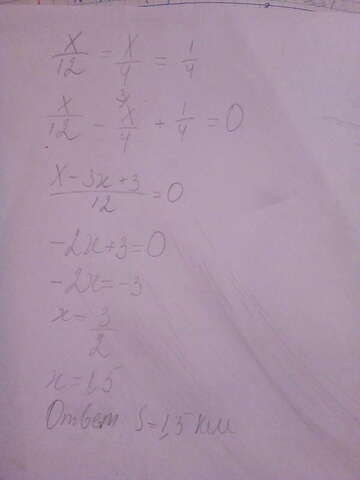 x/12 = x/4 = 1/4
x/12 - x/4 ³ + 1/4 = 0
x-3x+3/12 = 0
-2x+3=0
-2x=-3
x=3/2
x=1,5
Ответ S=1,5 км